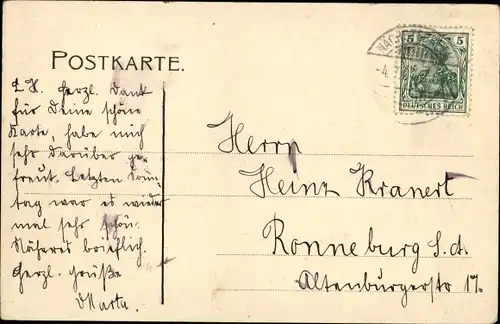 POSTKARTE.
L. H. Herzl. Dank
für Deine schöne
Karte, habe mich
sehr darüber ge-
freut. Letzten Sonn-
tag war es wieder
mal sehr schön.
Näheres brieflich.
Herzl. Grüße
Marta.
5 5
DEUTSCHES REICH
-4.
Herrn
Heinz Kranert
Ronneburg S. A.
Altenburgerstr 17.